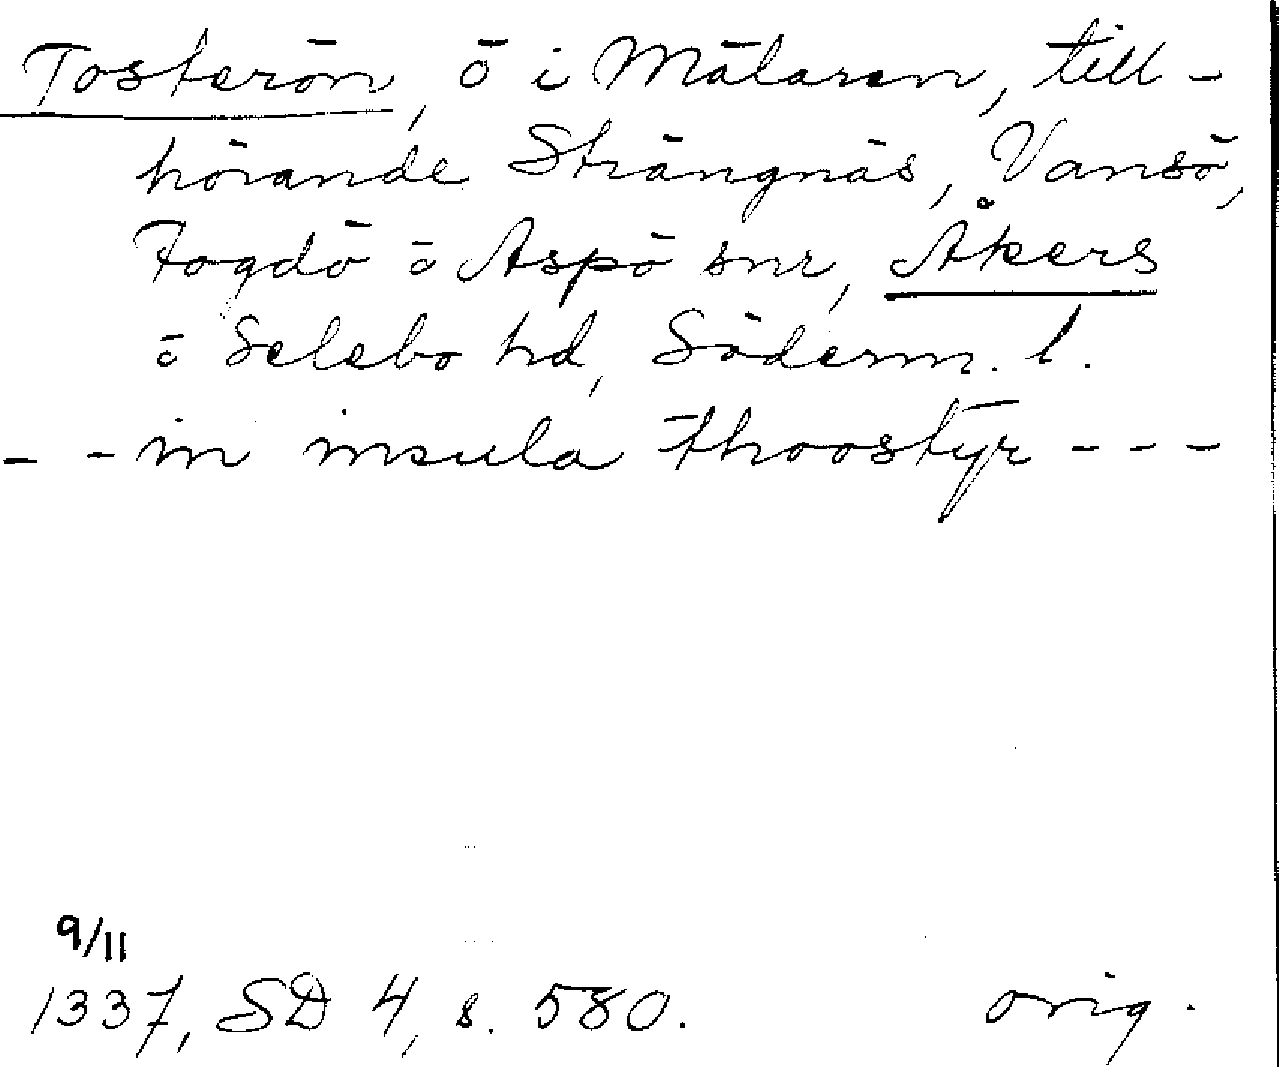 Tosterön, ö i Mälaren, till-
hörande Strängnäs, Vansö,
Fogdö o Aspö snr, Åkers
o Selebo hd, Söderm. l.
- - in insula thoostyr - - -
9/11
1337, SD 4, s. 580. orig.